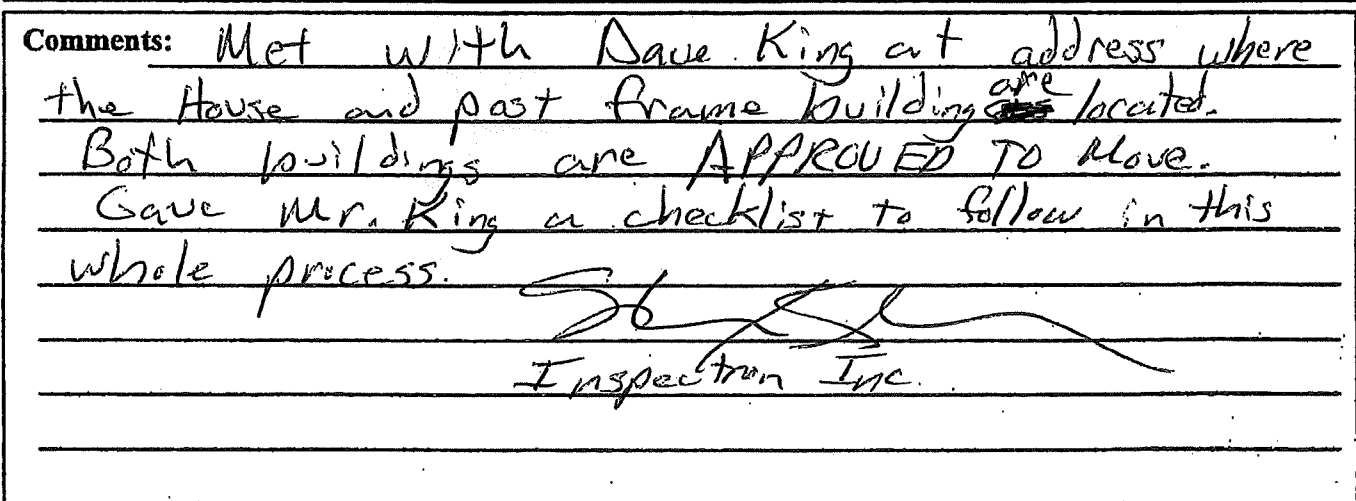 Comments: Met with Dave King at address where
the House and post frame building are located.
Both buildings are APPROVED TO Move.
Gave Mr. King a checklist to follow in this
whole process.
Inspectron Inc.